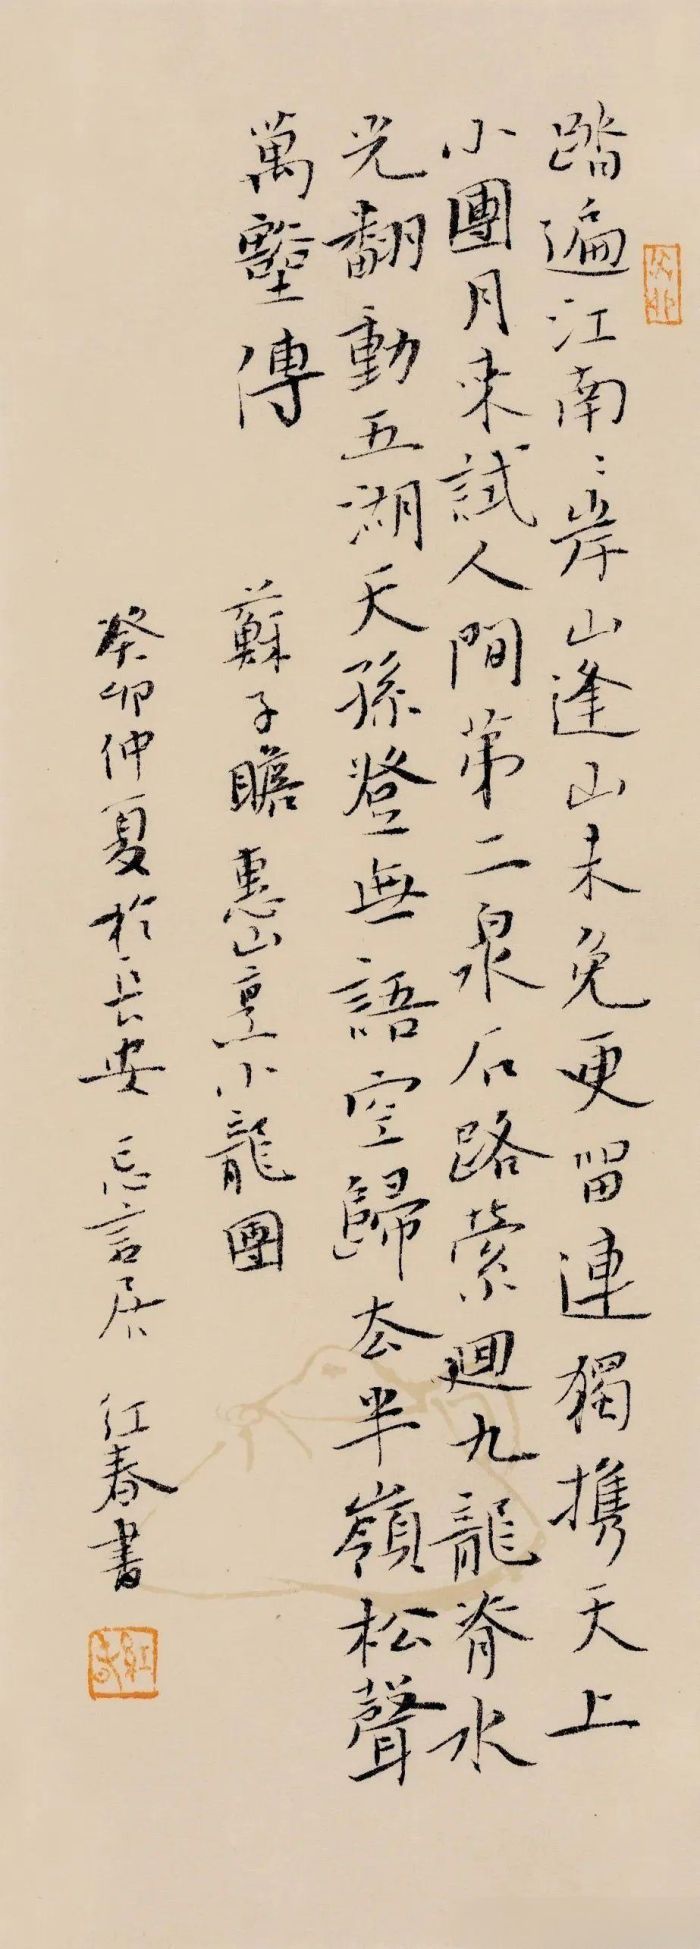 踏遍江南〻岸山逢山未免更留連獨携天上
小團月来試人間第二泉石路縈迴九龍脊水
光翻動五湖天孫登無語空歸去半嶺松聲
萬壑傳
蘇子瞻惠山烹小龍團
癸卯仲夏於長安 忘言居 红春書